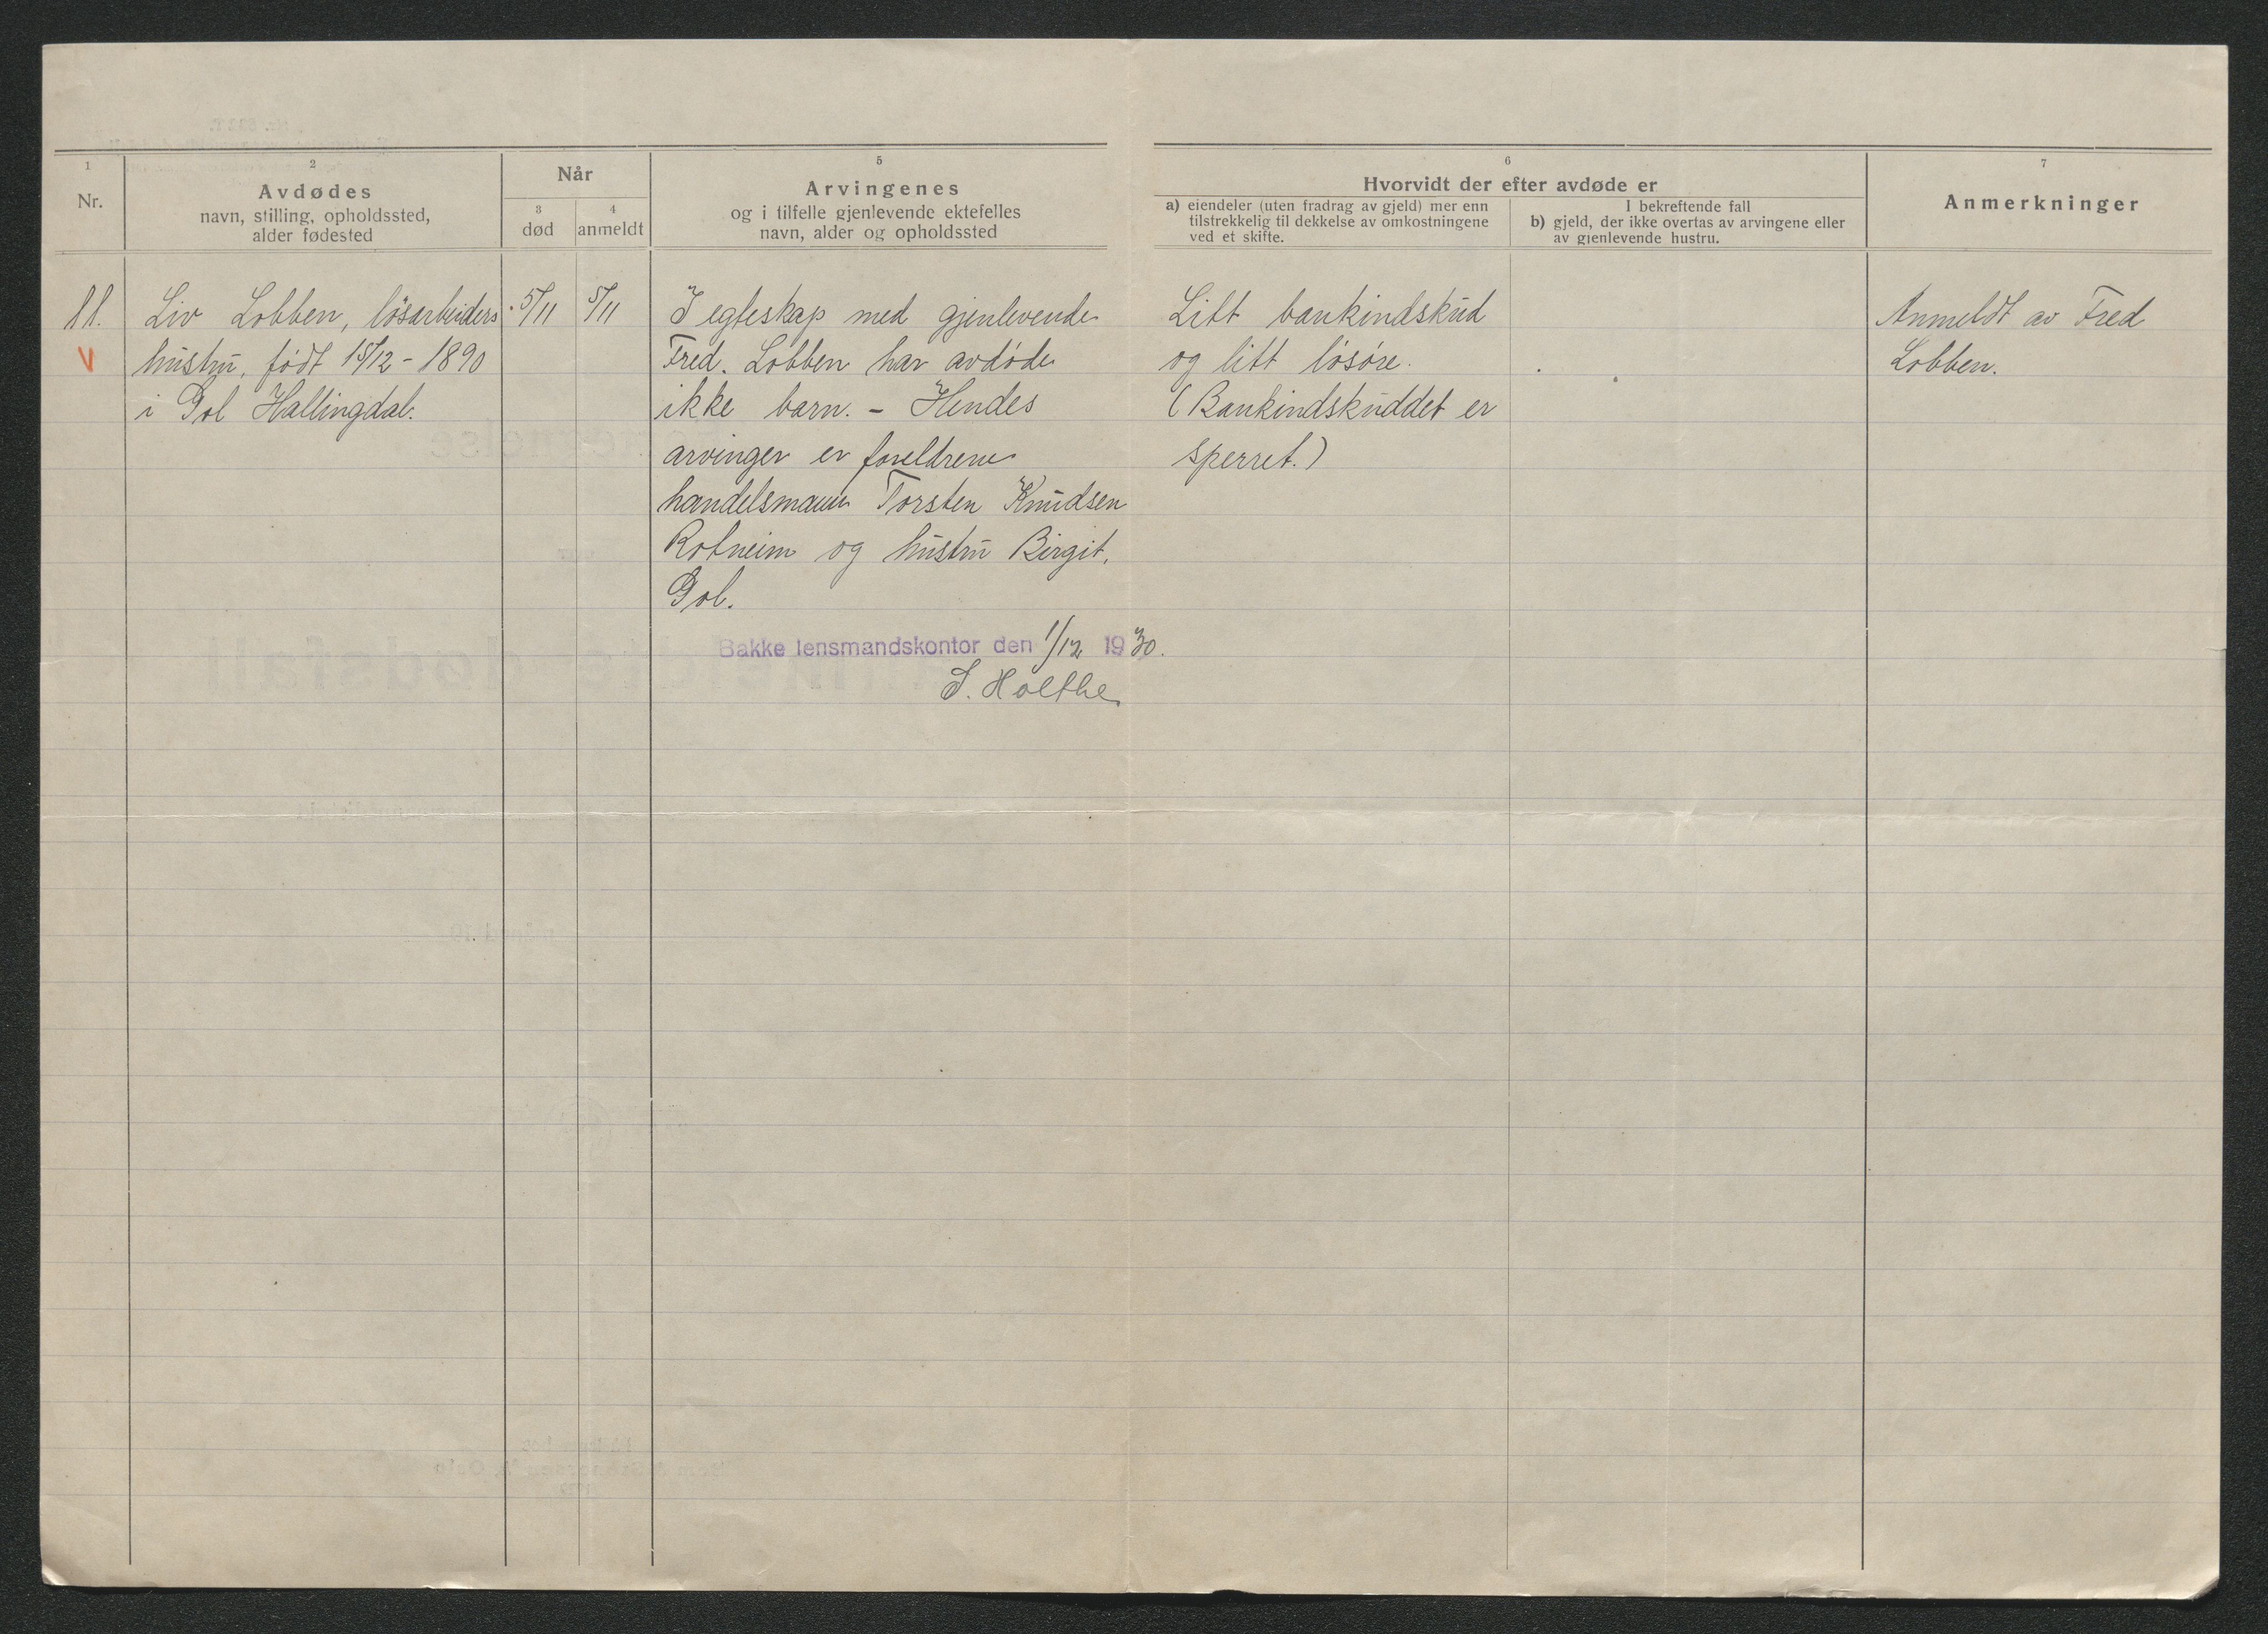 1
Nr.
2
Avdødes
navn, stilling, opholdssted,
alder fødested
Når
3
død
4
anmeldt
5
Arvingenes
og i tilfelle gjenlevende ektefelles
navn, alder og opholdssted
6
Hvorvidt der efter avdøde er
a) eiendeler (uten fradrag av gjeld) mer enn
tilstrekkelig til dekkelse av omkostningene
ved et skifte.
I bekreftende fall
b) gjeld, der ikke overtas av arvingene eller
av gjenlevende hustru.
7
Anmerkninger
11.
V
Liv Lobben, løsarbeiders
hustru, født 15/12 - 1890
i Gol Hallingdal.
5/11
5/11
I egteskap med gjenlevende
Fred. Lobben har avdøde
ikke barn. - Hendes
arvinger er foreldrene
handelsmann Torsten Knudsen
Rotneim og hustru Birgit,
Gol.
Bakke lensmandskontor den 1/12 1930.
S. Holthe
Litt bankindskud
og litt løsøre.
(Bankindskuddet er
sperret.)
Anmeldt av Fred
Lobben.